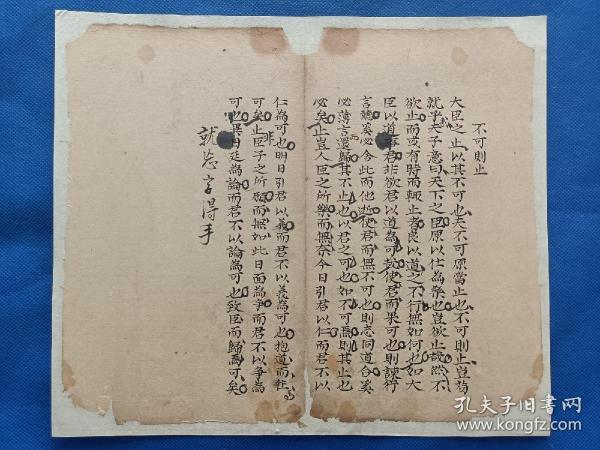 不可則止
大臣之止以其不可也夫不可原當止也不可則止豈苟
就乎夫子意曰天下之臣原以仕為樂也豈欲止哉然不
欲止而或有時而輒止者良以道之不行無如何也如大
臣以道事君非欲君以道為可哉使君而果可也則諫行
言聽奚必舍此而他從使君而無不可也則志同道合奚
必薄言還歸其不止也以君之可也如不可焉則其止也
必矣止豈人臣之所樂而無奈今日引君以仁而君不以
仁為可也明日引君以義而君不以義為可也抱道而往
可矣止臣子之所願而無如此日面為爭而君不以爭為
可也異日廷為論而君不以論為可也致臣而歸焉可矣
就忘字得手
孔夫子旧书网
www.kongfz.com